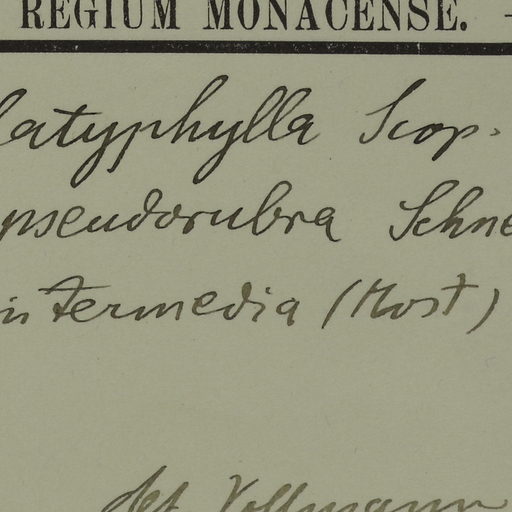 REGIUM MONACENSE. -
latyphylla Scop.
pseudorubra Schne
intermedia (Host)
det. Vollmann